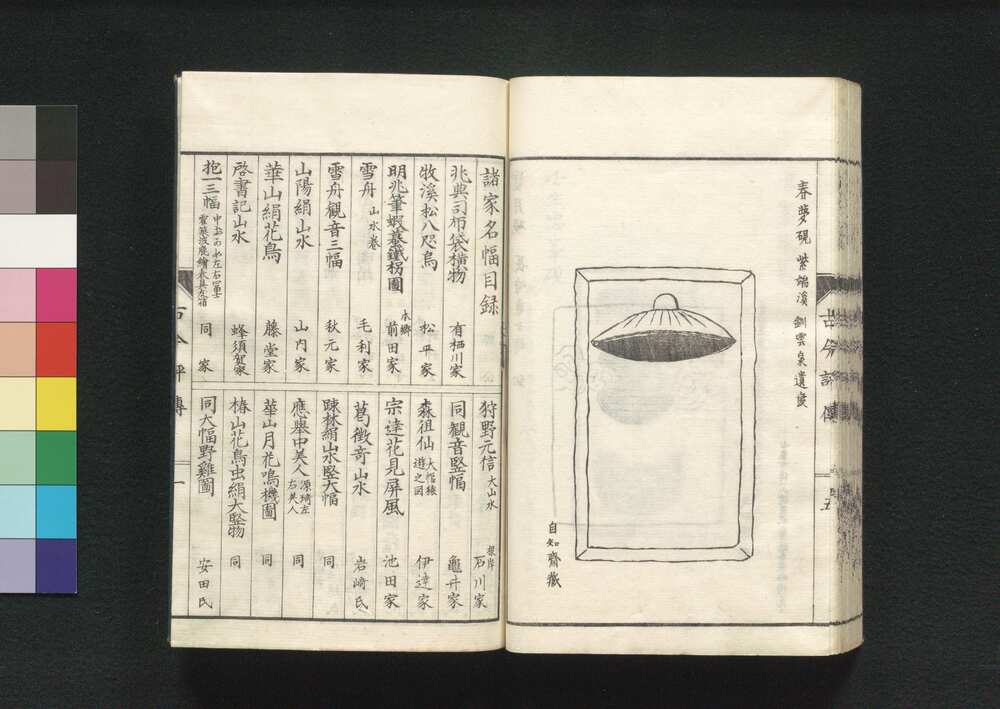 春夢硯 紫端溪 釧雲泉遺愛
自知齋藏
古今評傳
五
諸家名幅目録
兆典司布袋横物 有栖川家
牧溪松八咫鳥 松平家
明兆筆蝦蟇鐵拐圖 本郷 前田家
雪舟 山水巻 毛利家
雪舟觀音三幅 秋元家
山陽絹山水 山内家
華山絹花鳥 藤堂家
啓書記山水 蜂須賀家
抱一三幅 同家
狩野元信 大山水 根岸 石川家
同觀音竪幅 龜井家
森徂仙 大幅猿遊之図 伊達家
宗達花見屏風 池田家
葛徴奇山水 岩崎氏
疎林絹山水竪大幅 同
應舉中美人 源琦左右美人 同
華山月花鳴機圖 同
椿山花鳥虫絹大竪物 同
同大幅野雞圖 安田氏
古今評傳
一